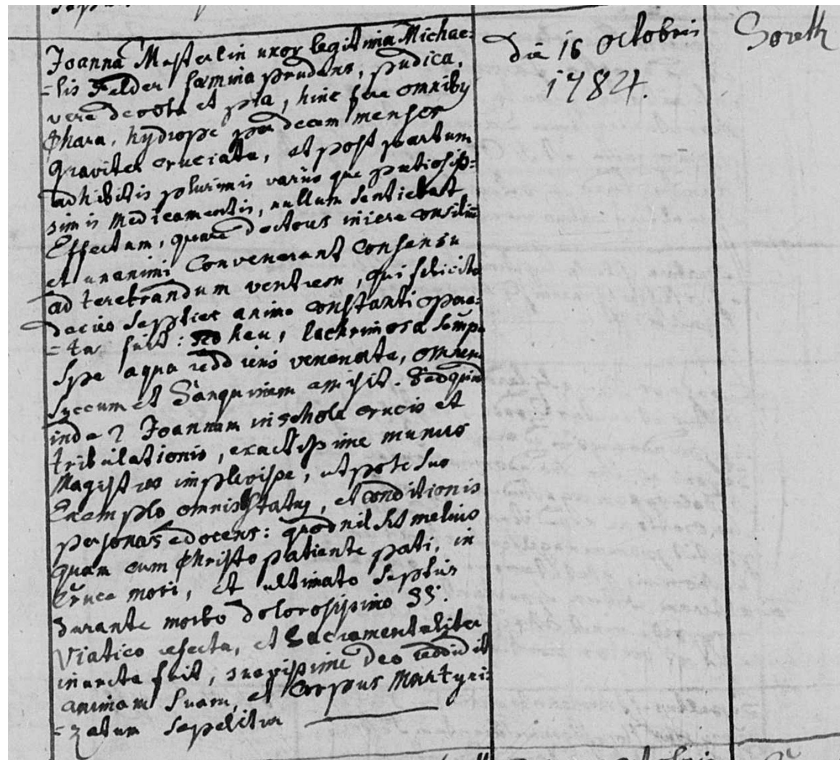 Joanna Mesterlin uxor legitima Michae-
die 16 Octobris
Soreth
-lis Felder fæmina prudens, pudica,
1784.
vere devota et pia, hinc fere omniby
Chara, hydrope per decem menses
graviter cruciata, et post partum
adhibitis plurimis variis que pretiosis-
simis Medicamentis, nullum sentiebat
Effectum, quare doctous iniere consiliũ
et unanimi Convenerunt Consensu
ad terebrandum ventrem, qui feliciter
decies septies animo constanti opera-
-tus fuit: sed heu, lachrimosa
spe aqua rediens venenata, omnem
succum et Sanguinem amisit. Sed quid
inde? Joannam in schola crucis et
tribulationis, exactissime munus
Magistræ implevisse, utpote suo
Exemplo omnis Status, et conditionis
personas edocens: quod nil sit melius
quam cum Christo patiente pati, in
Cruce mori, et ultimato septius
durante morbo dolorosissimo SS.
Viatico refecta, et Sacramentaliter
inuncta fuit, suavissime Deo reddidit
animam suam, et Corpus Martyri-
-zatum sepelitur